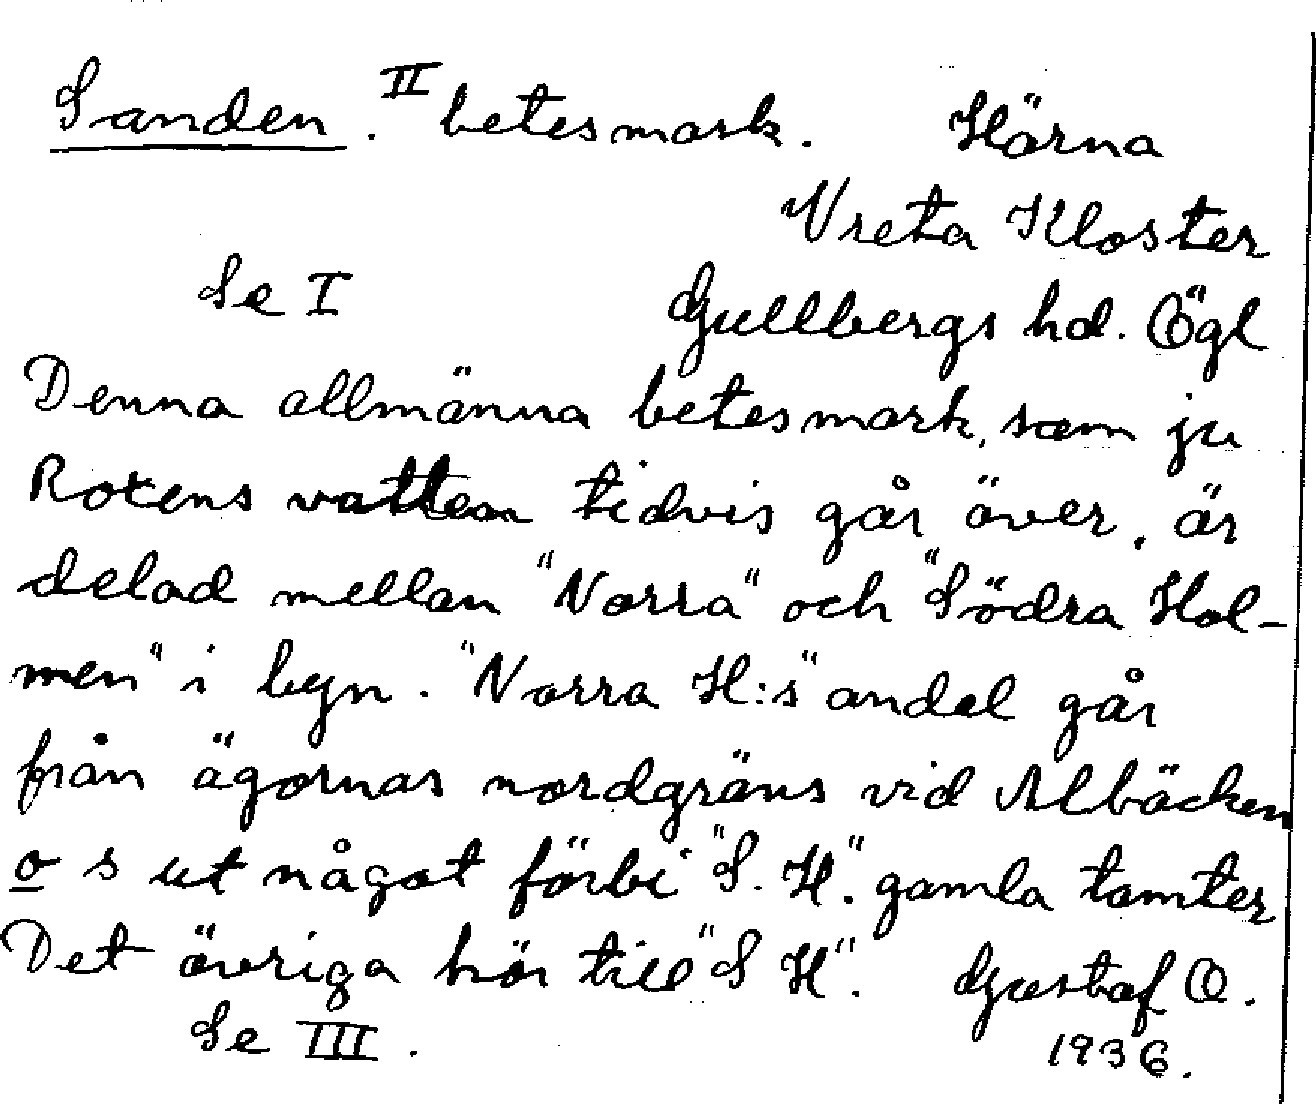 Sanden. II betesmark. Härna
Vreta Kloster
Se I Gullbergs hd. Ögl
Denna allmänna betesmark, som ju
Roxens vatten tidvis går över, är
delad mellan "Norra" och "Södra Hol-
men" i byn. "Norra H:s" andel går
från ägornas nordgräns vid Albäcken
o s ut något förbi "S. H." gamla tomter
Det övriga hör till "S H". Gustaf O.
Se III. 1936.